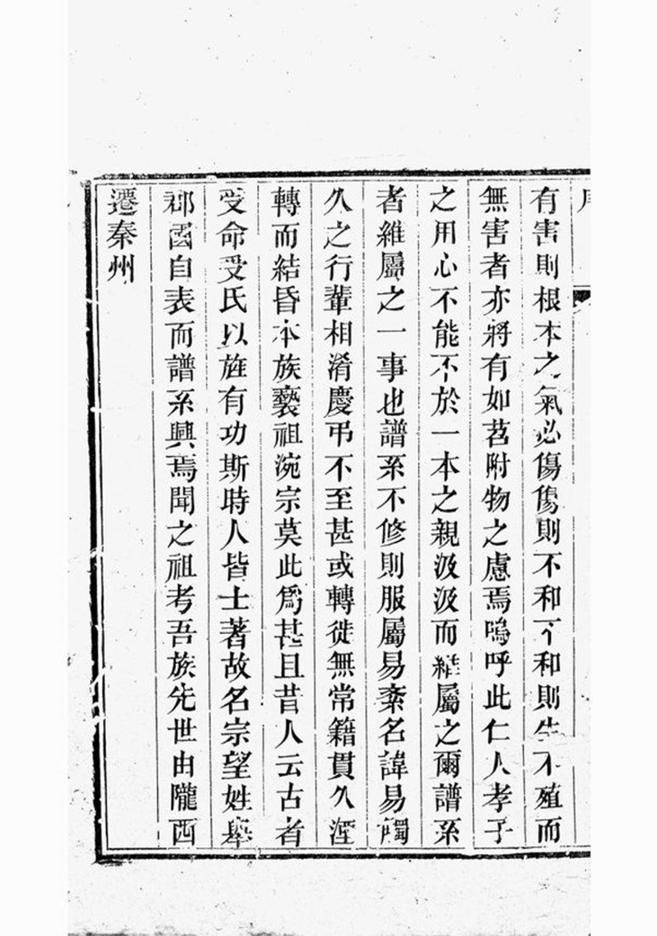 有害則根本之氣必傷傷則不和不和則生不殖而
無害者亦將有如苕附物之慮焉嗚呼此仁人孝子
之用心不能不於一本之親汲汲而維屬之爾譜系
者維屬之一事也譜系不修則服屬易紊名諱易觸
久之行輩相淆慶弔不至甚或轉徙無常籍貫久湮
轉而結昏本族褻祖涴宗莫此爲甚且昔人云古者
受命受氏以旌有功斯時人皆土著故名宗望姓舉
郡國自表而譜系興焉聞之祖考吾族先世由隴西
遷秦州